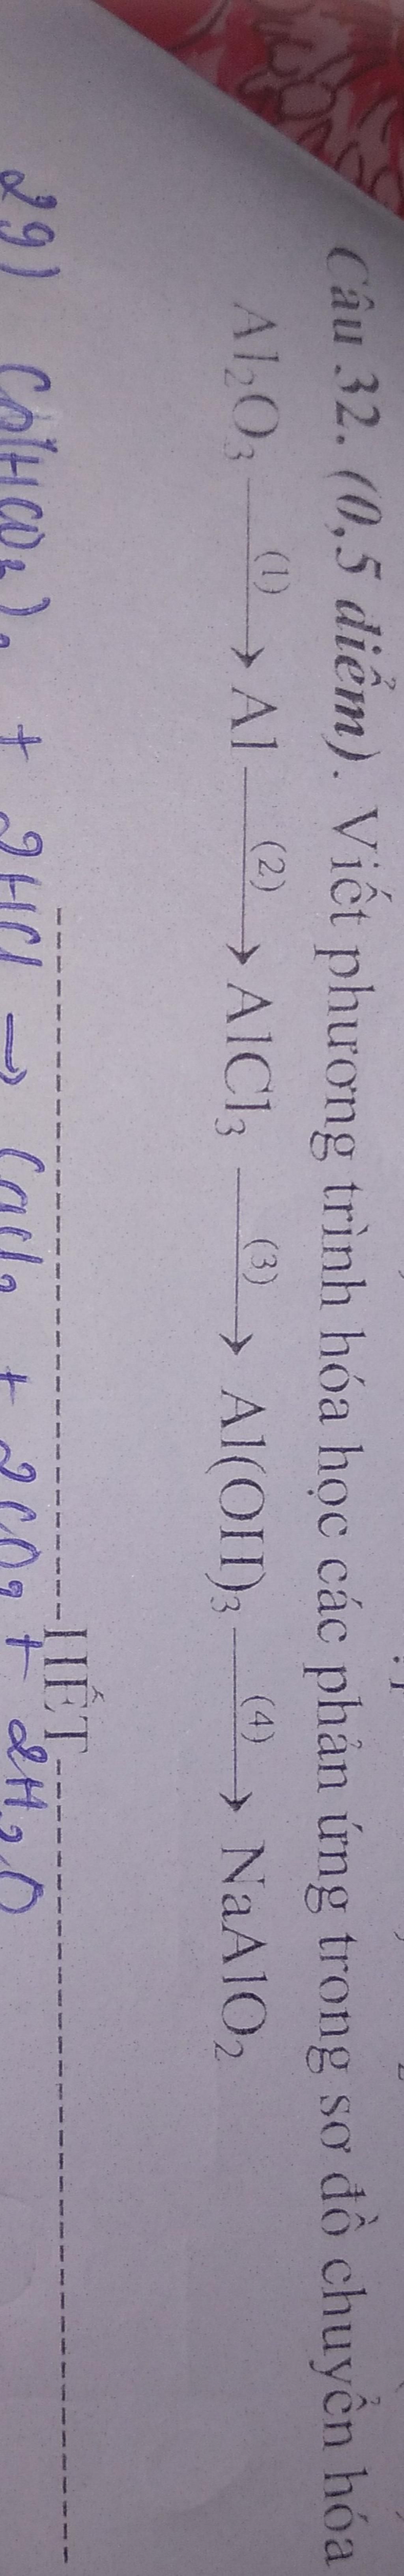 Câu 32. (0,5 điểm). Viết phương trình hóa học các phản ứng trong sơ đồ chuyển hóa
Al₂O₃ —(1)→ Al —(2)→ AlCl₃ —(3)→ Al(OH)₃ —(4)→ NaAlO₂
HẾT
29) Ca(HCO₃)₂ + 2HCl → CaCl₂ + 2CO₂ + 2H₂O